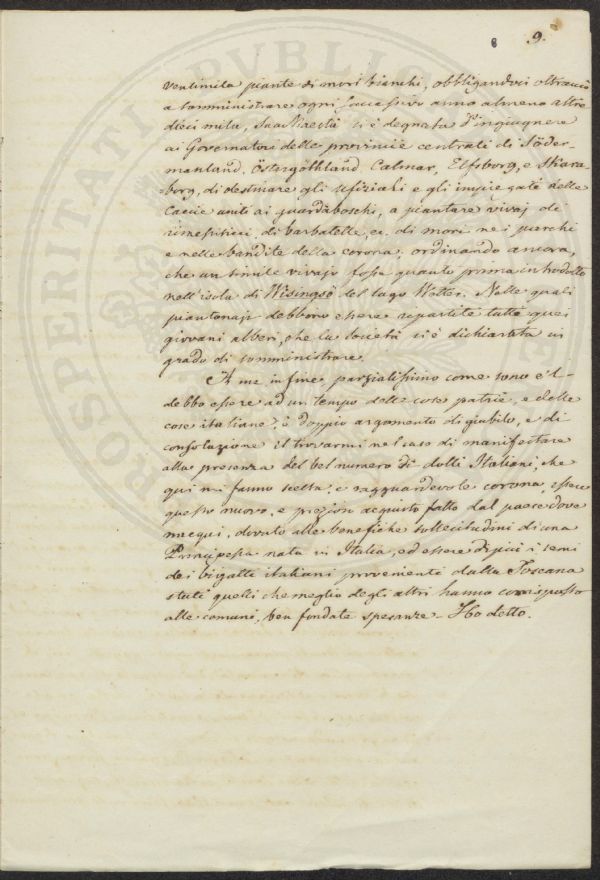 6 9.
ventimila piante di mori bianchi, obbligandoci oltracciò
a somministrare ogni successivo anno almeno altre
dieci mila, Sua Maestà si è degnata d'ingiugnere
ai Governatori delle provincie centrali di Söder-
manland, Östergöthland, Calmar, Elfsborg, e Skara-
borg, di destinare gli uffiziali e gli impiegati nelle
Caccie uniti ai guardaboschi, a piantare vivaj di
rimessiticci, di barbatelle, ec. di mori ne i parchi
e nelle bandite della corona, ordinando ancora,
che un simile vivajo fosse quanto prima introdotto
nell'isola di Wisingsö del lago Wetter. Nelle quali
piantonaje debbono essere repartite tutti quei
giovani alberi, che la Società si è dichiarata in
grado di somministrare.
A me in fine parzialissimo come sono e'l
debbo essere ad un tempo delle cose patrie, e delle
cose italiane, è doppio argomento di giubilo, e di
consolazione il trovarmi nel caso di manifestare
alla presenza del bel numero di dotti Italiani, che
qui mi fanno scelta, e ragguardevole corona, essere
questo nuovo, e prezioso acquisto fatto dal paese dove
nacqui, dovuto alle benefiche sollecitudini di una
Principessa nata in Italia, ed essere di più i semi
dei bigatti italiani provenienti dalla Toscana
stati quelli che meglio degli altri hanno corrisposto
alle comuni, ben fondate speranze – Ho detto.
PROSPERITATI PUBLICAE